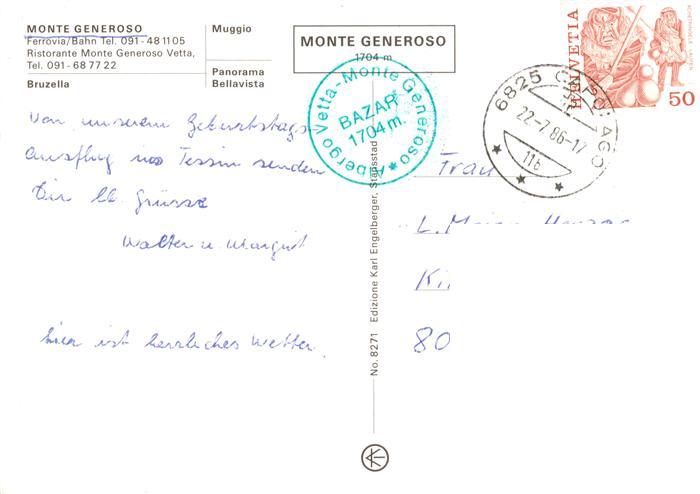 MONTE GENEROSO
Ferrovia/Bahn Tel. 091-48 11 05
Ristorante Monte Generoso Vetta,
Tel. 091-68 77 22
Bruzella
Muggio
Panorama
Bellavista
MONTE GENEROSO
1704 m
Albergo Vetta-Monte Generoso
BAZAR
1704 m.
6825 CAPOLAGO
22-7.86-17
11b
HELVETIA
50
Von unserem Geburtstags-
ausflug ins Tessin senden
Dir lb. Grüsse
Walter u. Margrit
hier ist herrliches Wetter.
Frau
L.
80
No. 8271 Edizione Karl Engelberger, Stansstad